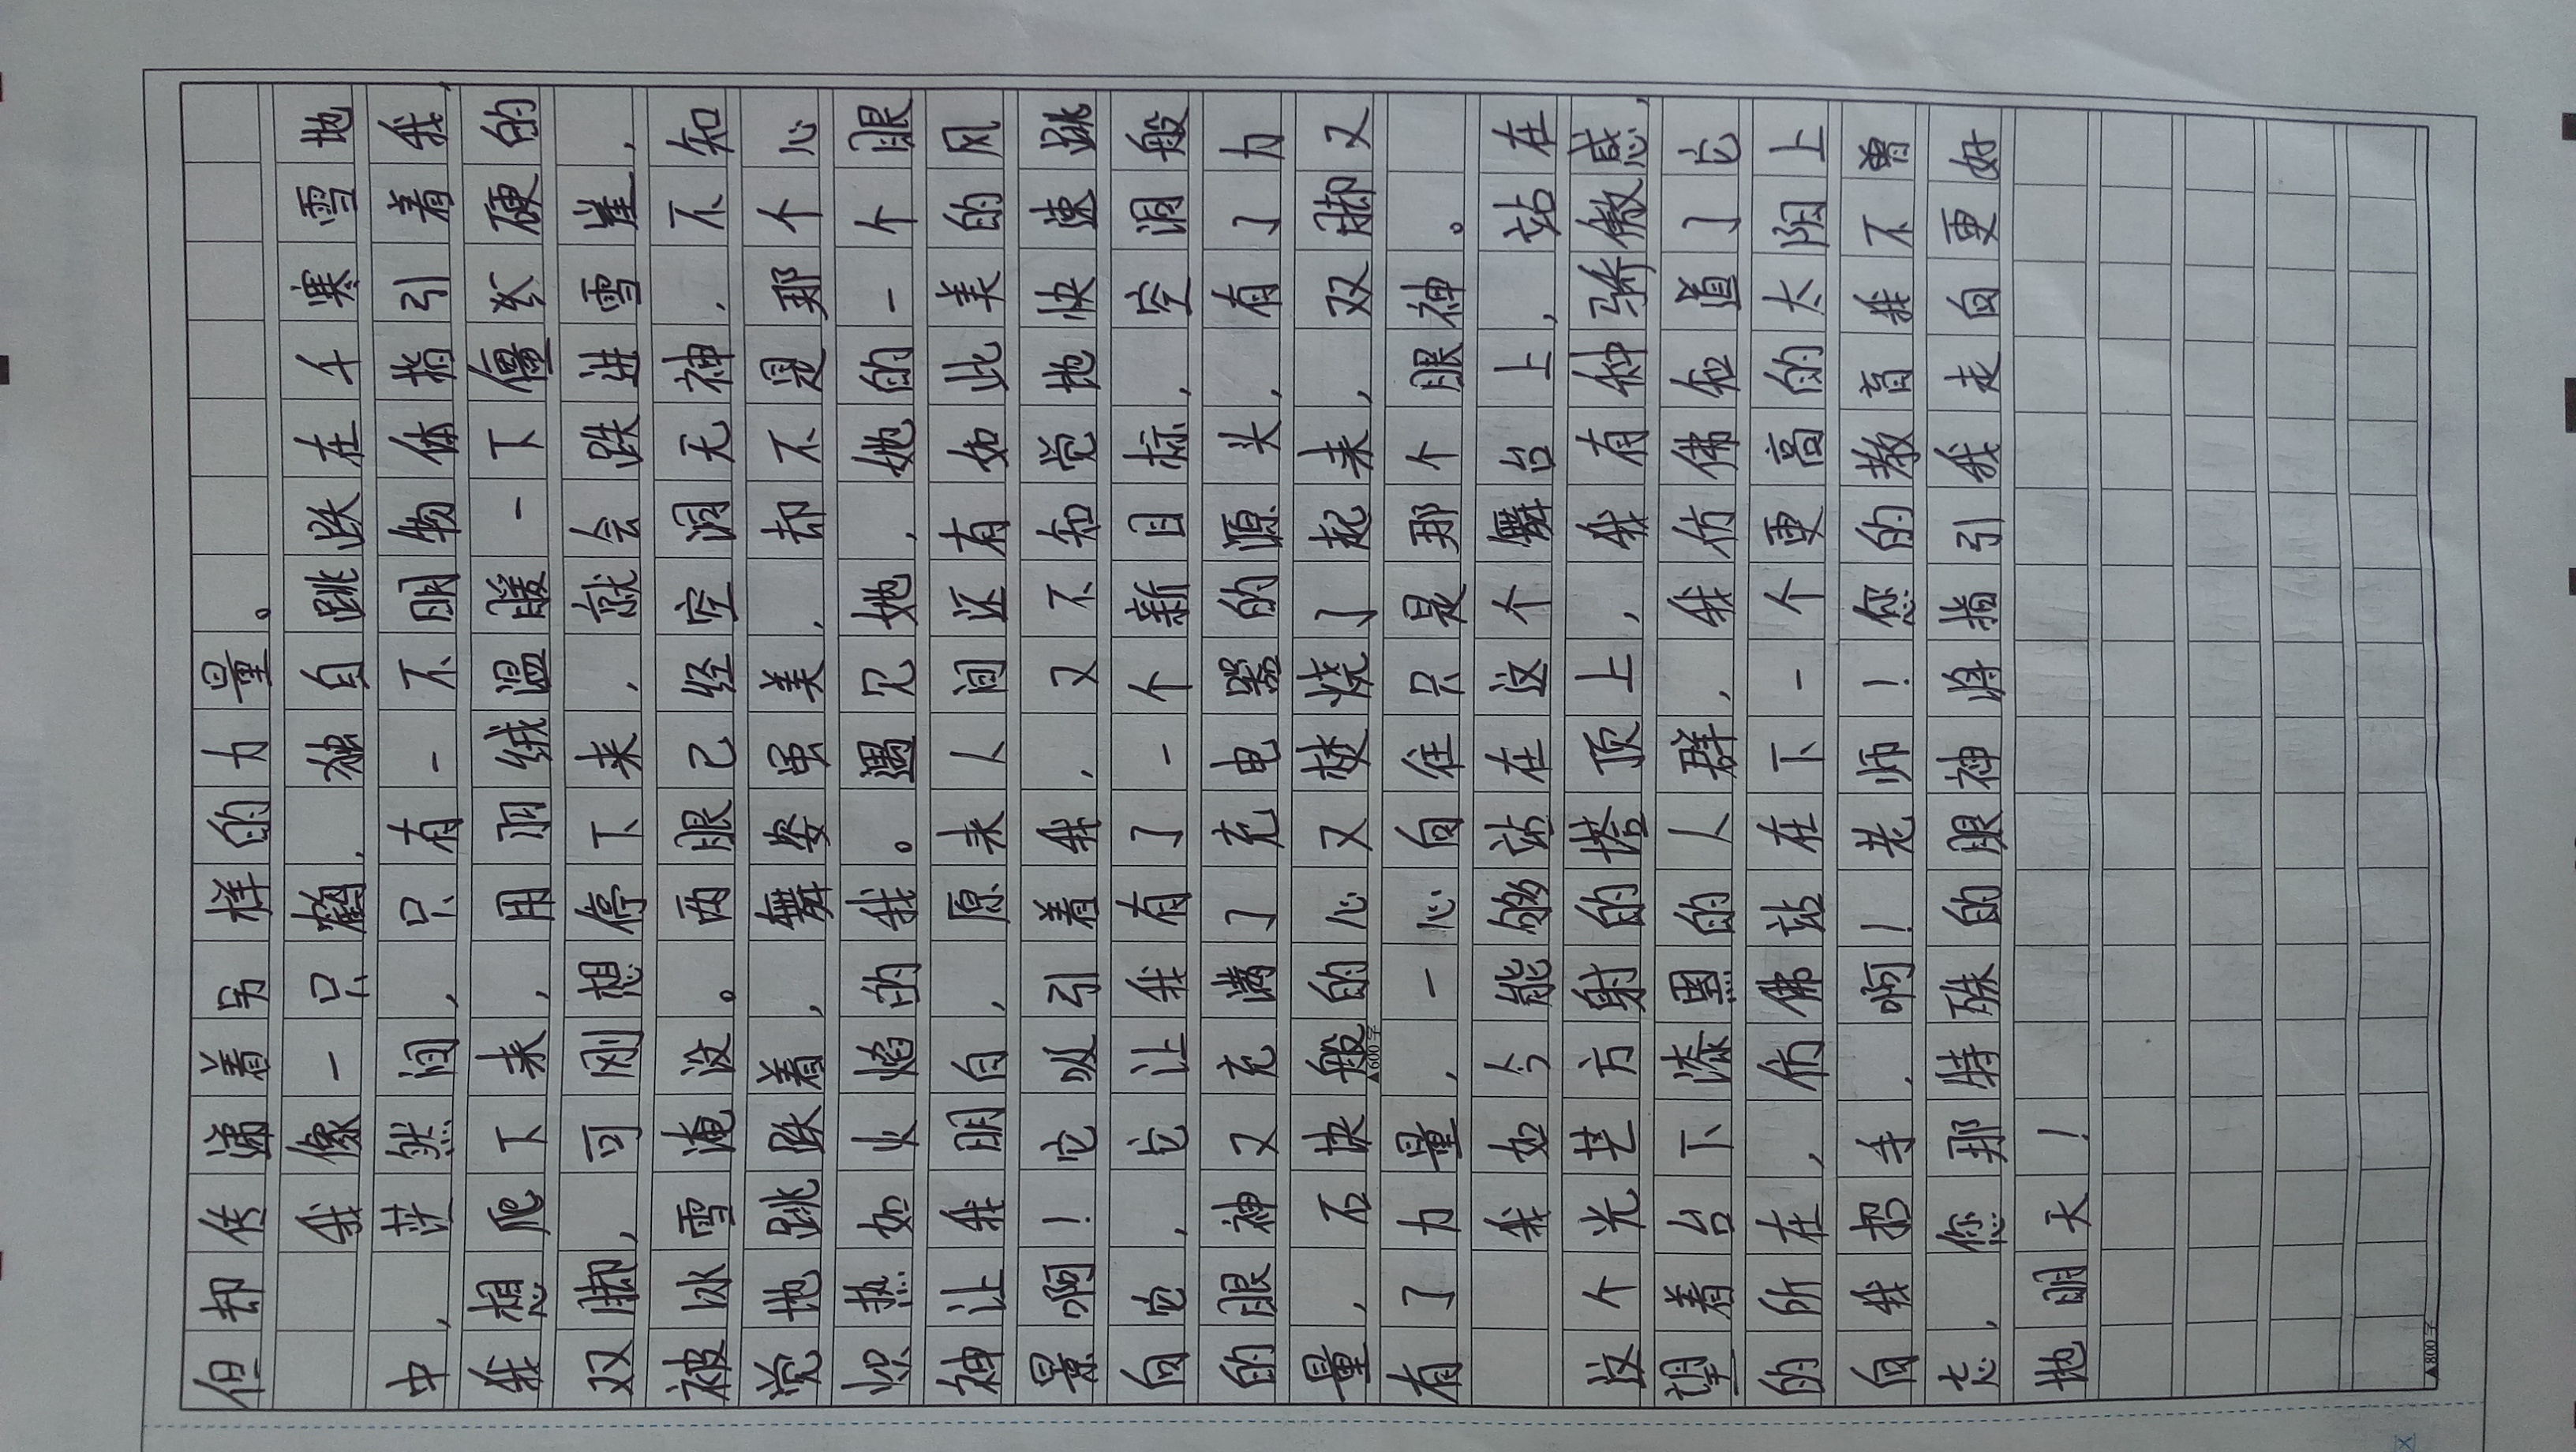 但却传递着另样的力量。
我像一只鹤，独自跳跌在千寒雪地
中，茫然间，只有一不明物体指引着我
我想爬下来，用羽绒温暖一下僵硬的
双脚，可刚想停下来，就会跌进雪崖，
被冰雪淹没。两眼已经空洞无神，不知
觉地跳跌着，舞姿虽美，却不是那个心
炽热如火焰的我。遇见她，她的一个眼
神让我明白，原来人间还有如此美的风
景啊！它吸引着我，又不知觉地快速跳
向它，它让我有了一个新目标，空洞般
的眼神又充满了充电器的源头，有了力
量，石块般的心又焚烧了起来，双脚又
▲600字
有了力量，一心向往只是那个眼神。
我如今能够站在这个舞台上，站在
这个光芒方射的塔顶上，我有种骄傲感，
望着台下漆黑的人群，我仿佛知道了它
的所在，仿佛站在下一个更高的太阳上
向我招手，啊！老师！您的教育我不曾
忘，您那特殊的眼神将指引我走向更好
地明天！
▲800字